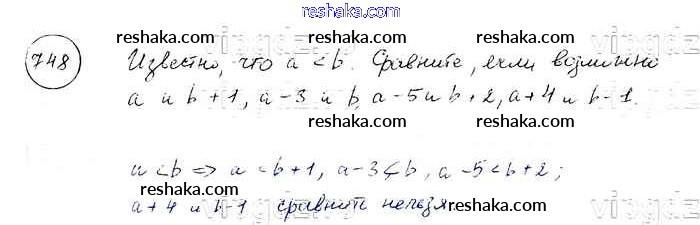 reshaka.com
748 Известно, что a < b. Сравните, если возможно
a и b + 1, a - 3 и b, a - 5 и b + 2, a + 4 и b - 1.
a < b => a < b + 1, a - 3 < b, a - 5 < b + 2;
a + 4 и b - 1 сравнить нельзя
reshaka.com reshaka.com reshaka.com
reshaka.com
reshaka.com reshaka.com
reshaka.com
reshaka.com